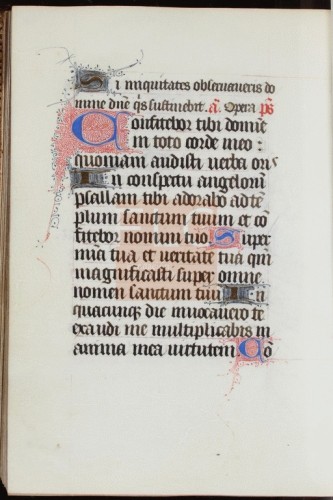 Si iniquitates observaveris do
mine dñe q̄s sustinebit. añ. Opera p̄s
Confitebor tibi domine
in toto corde meo :
quoniam audisti verba oris
In conspectu angelorū
psallam tibi adorabo ad tē
plum sanctum tuum et cō
fitebor nomini tuo. Super
mīa tua et veritate tua qm̄
magnificasti super omne
nomen sanctum tuū In
quacūqꝫ die invocavero te
exaudi me multiplicabis in
anima mea virtutem. Cō